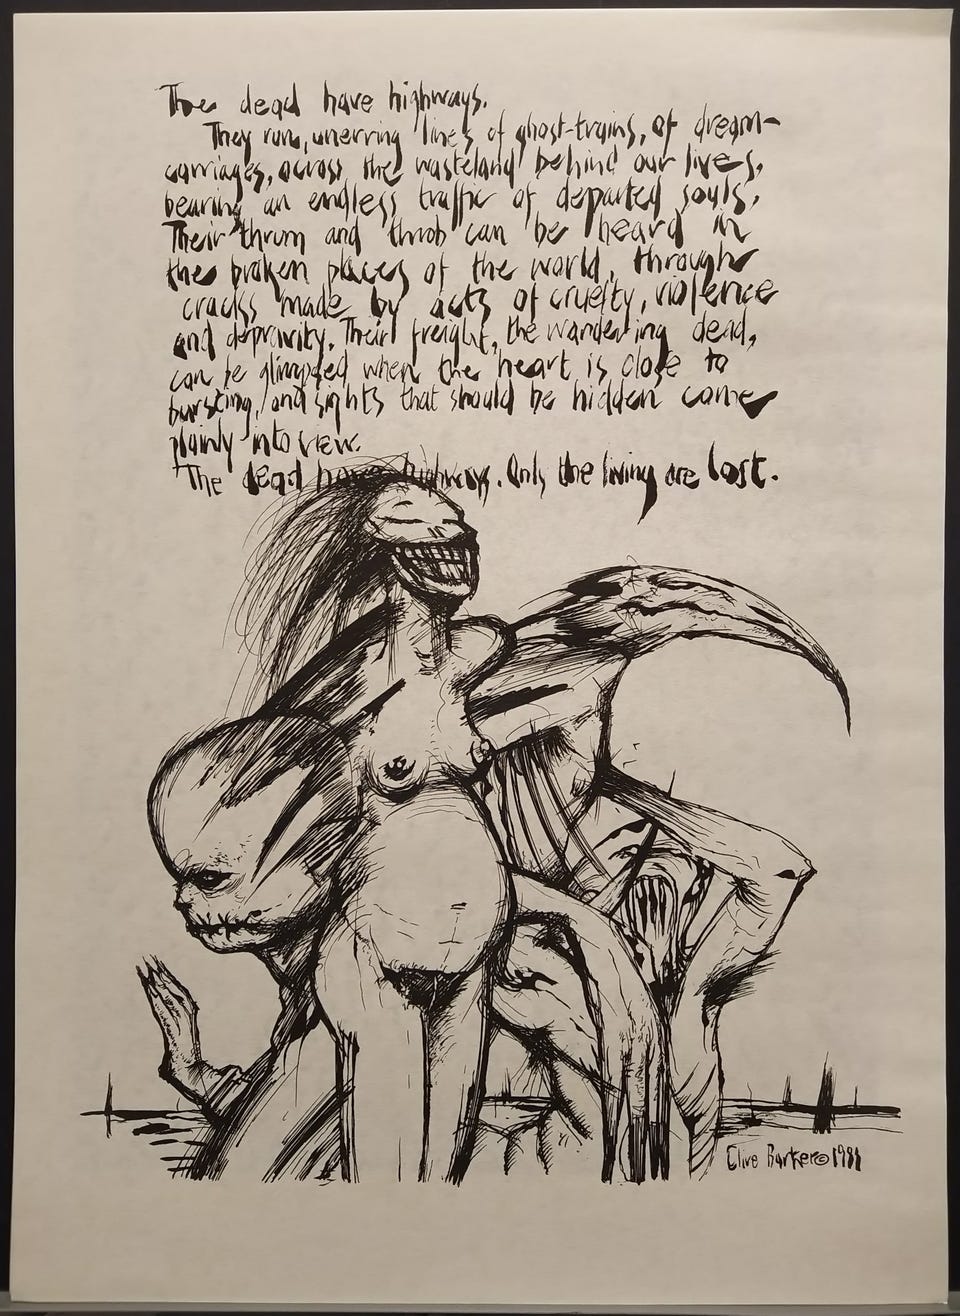 The dead have highways.
They run, unerring lines of ghost-trains, of dream-
carriages, across the wasteland behind our lives,
bearing an endless traffic of departed souls.
Their thrum and throb can be heard in
the broken places of the world, through
cracks made by acts of cruelty, violence
and depravity. Their freight, the wandering dead,
can be glimpsed when the heart is close to
bursting, and sights that should be hidden come
plainly into view.
The dead have highways. Only the living are lost.
Clive Barker © 1981